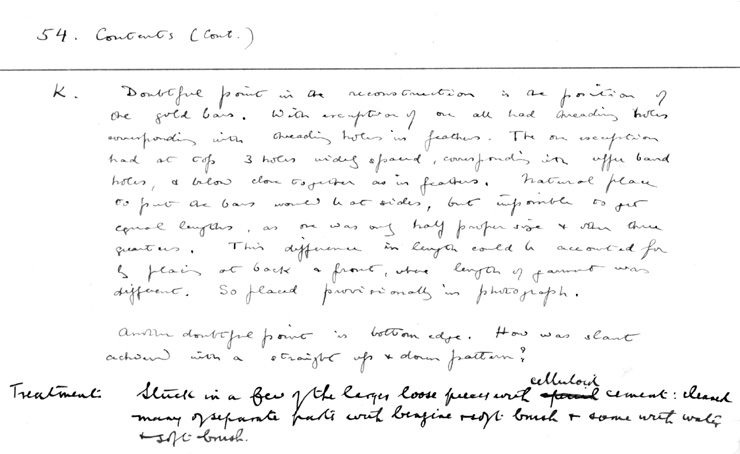 54. Contents (Cont.)
K. Doubtful point in the reconstruction is the position of
the gold bars. With exception of one all had threading holes
corresponding with threading holes in feathers. The one exception
had at top 3 holes widely spaced, corresponding with upper band
holes, & below close together as in feathers. Natural place
to put the bars would be at sides, but impossible to get
equal lengths, as one was only half proper size & other three
quarters. This difference in length could be accounted for
by placing at back & front, where length of garment was
different. So placed provisionally in photograph.
Another doubtful point is bottom edge. How was slant
achieved with a straight up & down pattern?
celluloid
Treatment: Stuck in a few of the larger loose pieces with cement: cleaned
many of separate parts with benzine & soft brush & some with water
& soft brush.